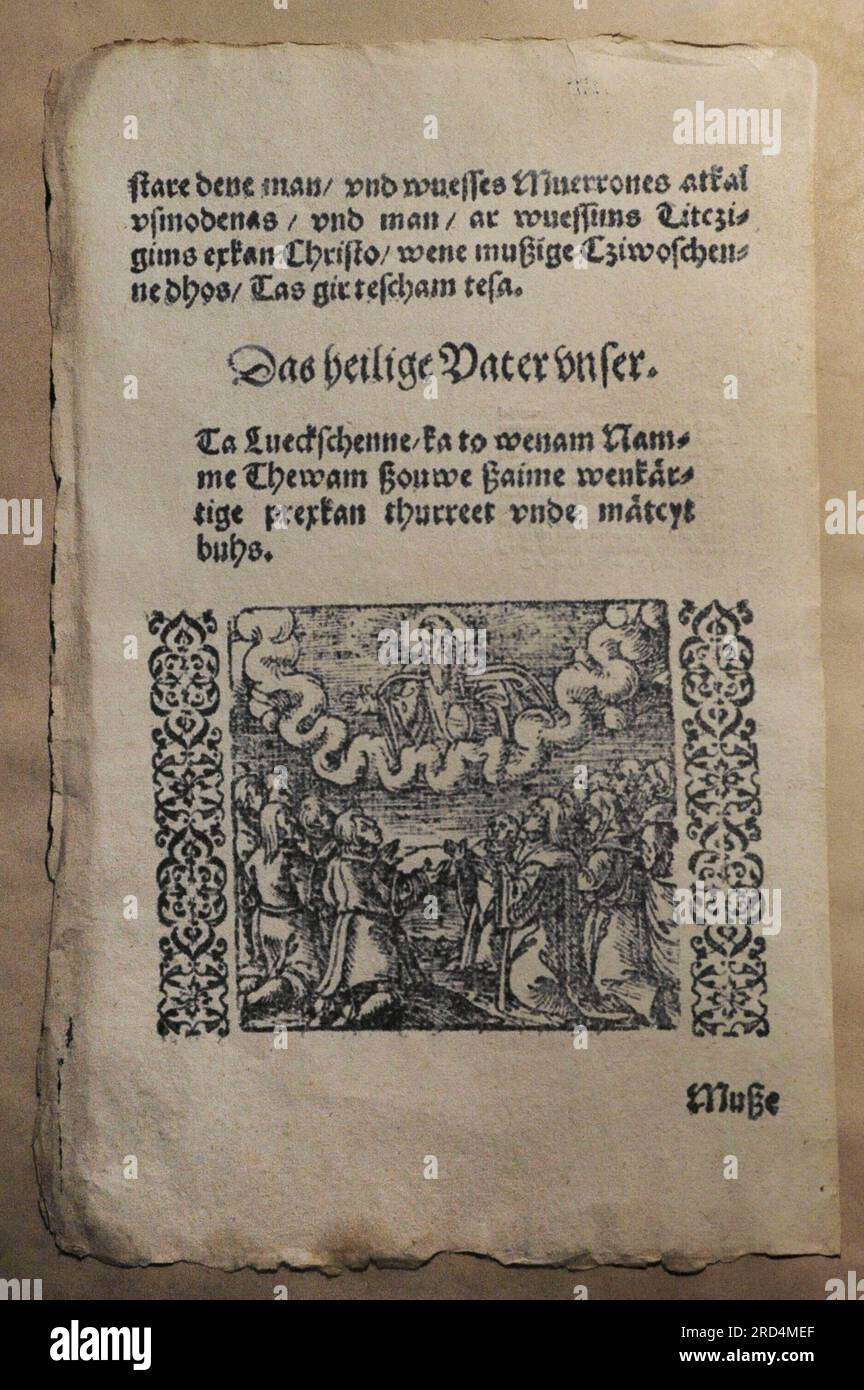 stare dene man/ vnd wuesses Muerrones atkal
vsmodenas / vnd man/ ar wuessims Titczi-
gims exkan Christo/ wene mußige Cziwoschen-
ne dhos/ Tas gir tescham tesa.
Das heilige Vater vnser.
Ta Lueckschenne/ ka to wenam Nam-
me Thewam ßouwe ßaime wenkär-
tige prexkan thurreet vnde mätcyt
buhs.
Muße
alamy
Image ID: 2RD4MEF
www.alamy.com